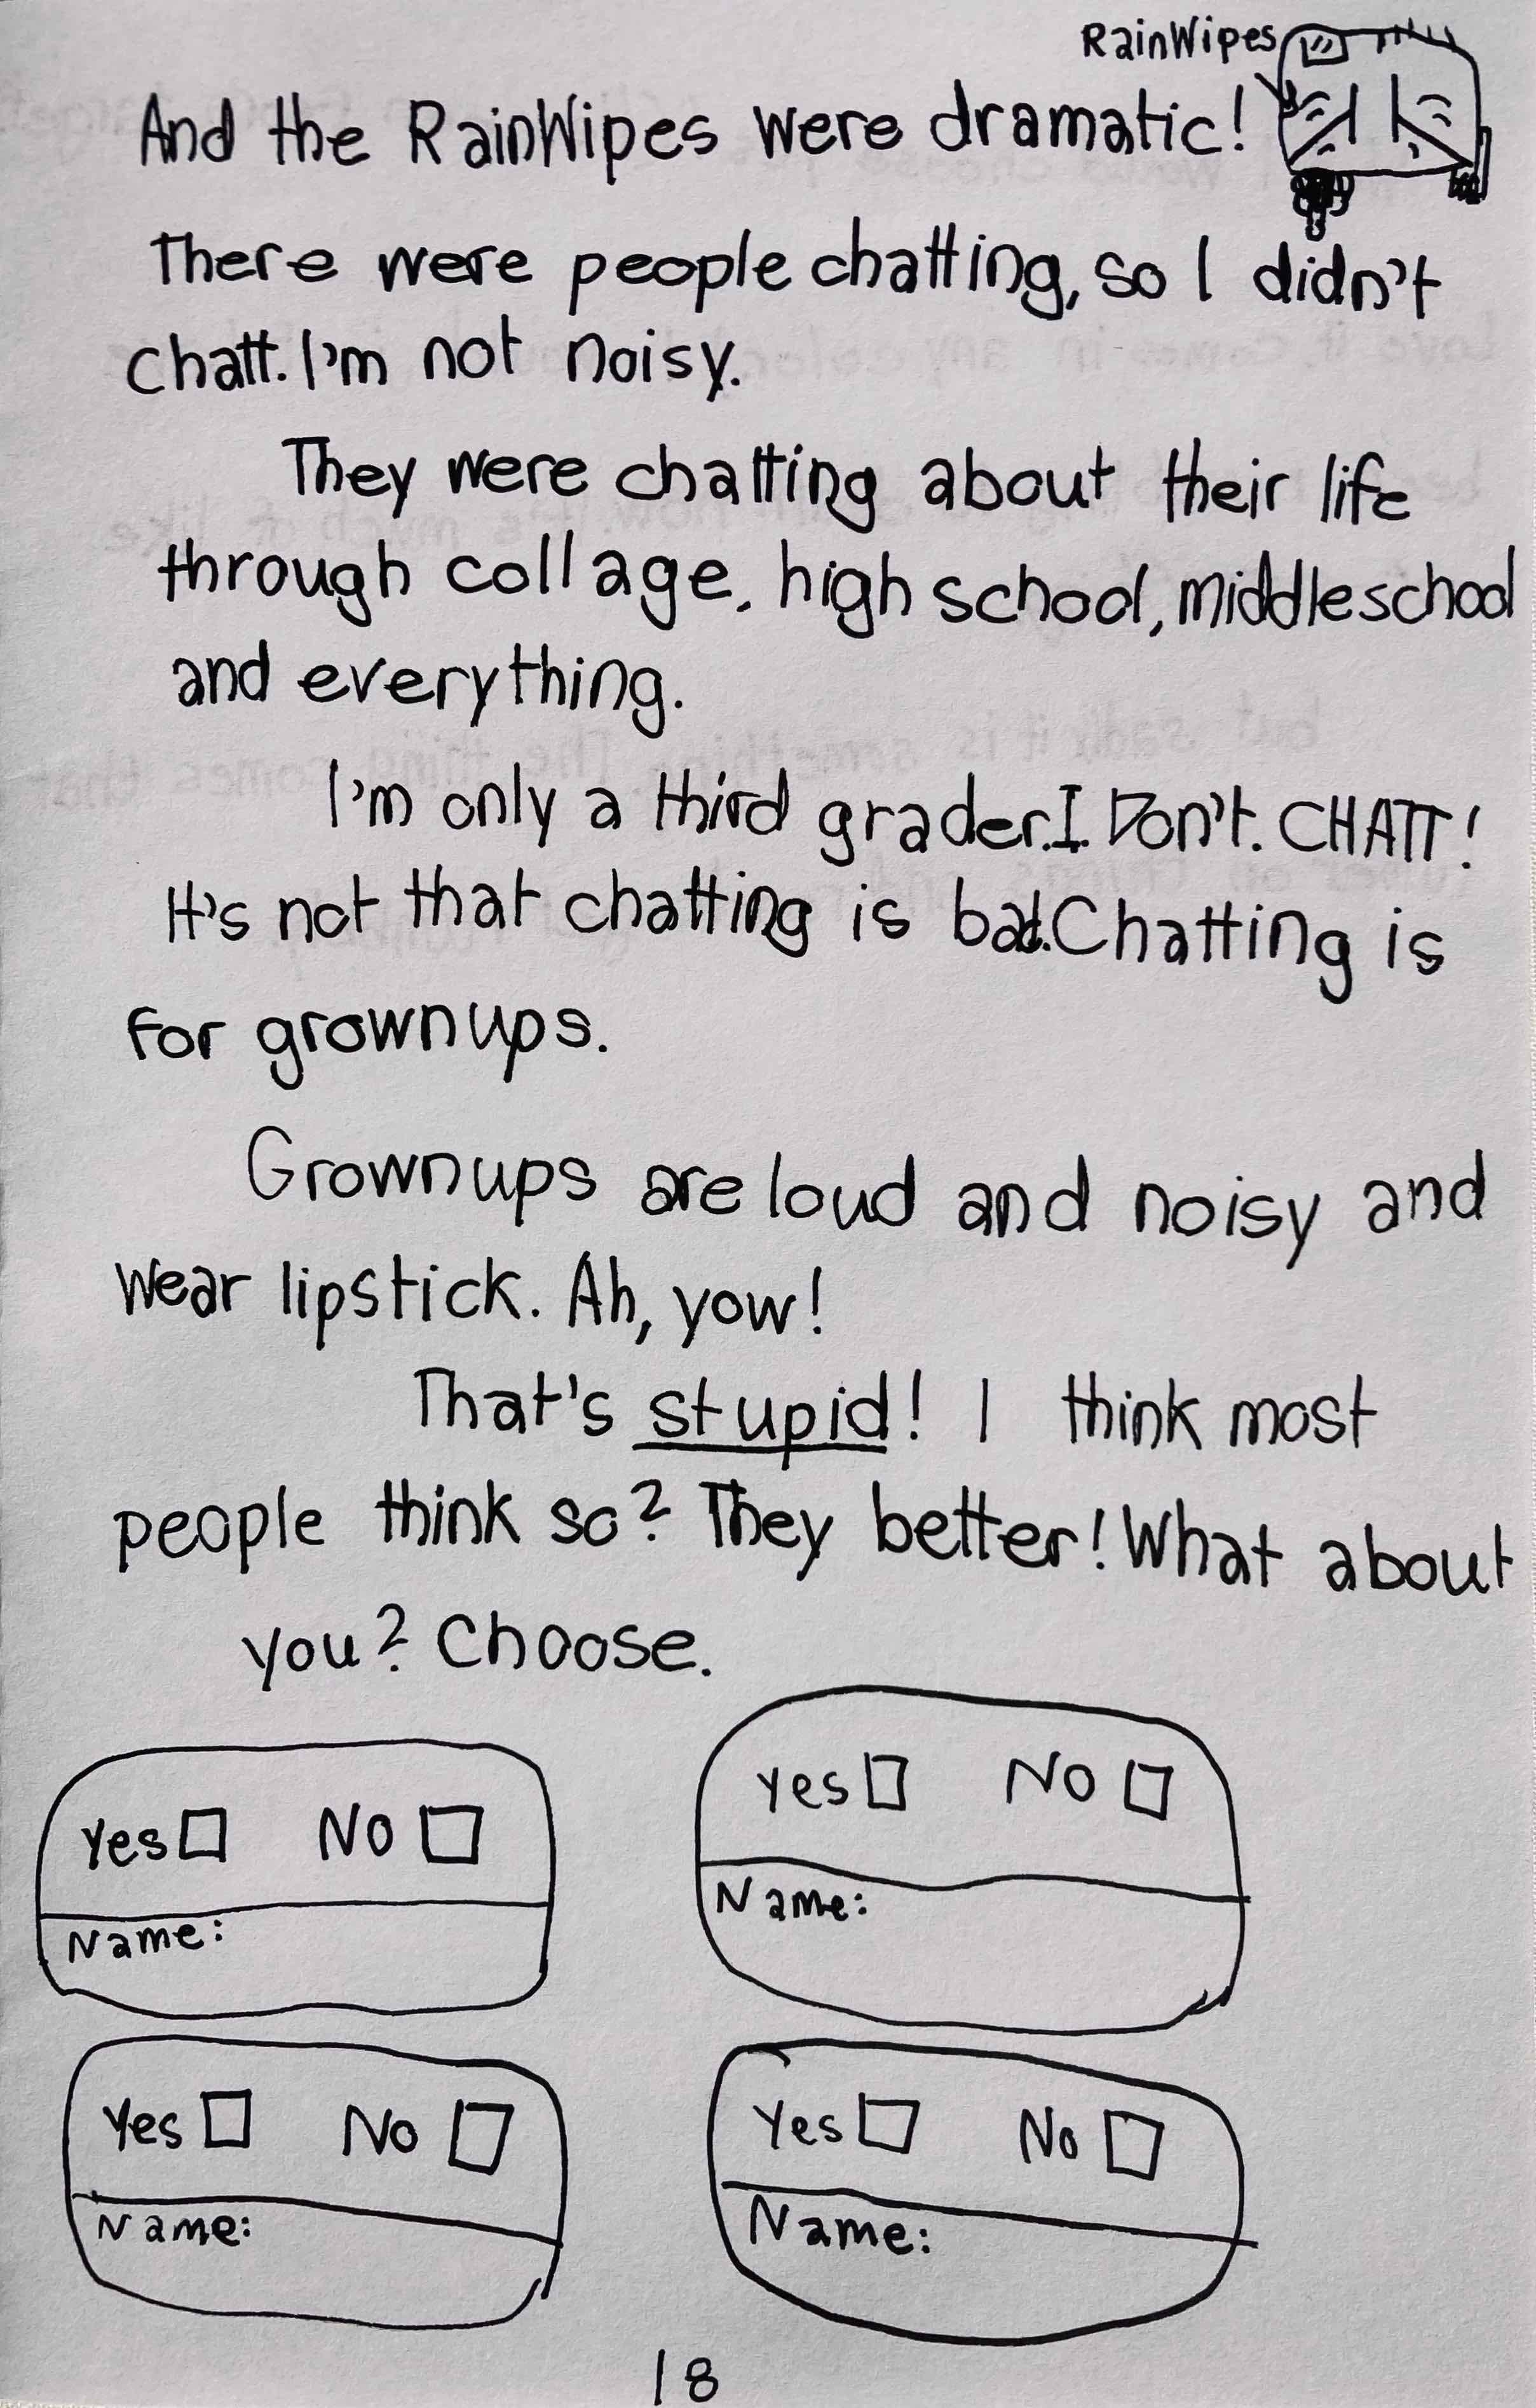 RainWipes
And the RainWipes were dramatic!
There were people chatting, so I didn't
chatt. I'm not noisy.
They were chatting about their life
through collage, high school, middle school
and everything.
I'm only a third grader. I. Don't. CHATT!
It's not that chatting is bad. Chatting is
for grownups.
Grownups are loud and noisy and
wear lipstick. Ah, yow!
That's stupid! I think most
people think so? They better! What about
you? Choose.
Yes No
Name:
Yes No
Name:
Yes No
Name:
Yes No
Name:
18